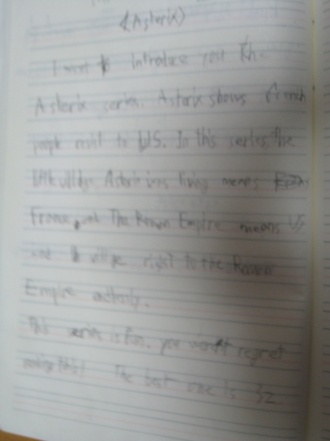 <Asterix>
I want to introduce you the
Asterix series. Asterix shows French
people resist to US. In this series, the
little village Asterix was living means
France, and The Roman Empire means US
and village resist to the Roman
Empire
This series is fun. you won't regret
reading this! The best one is